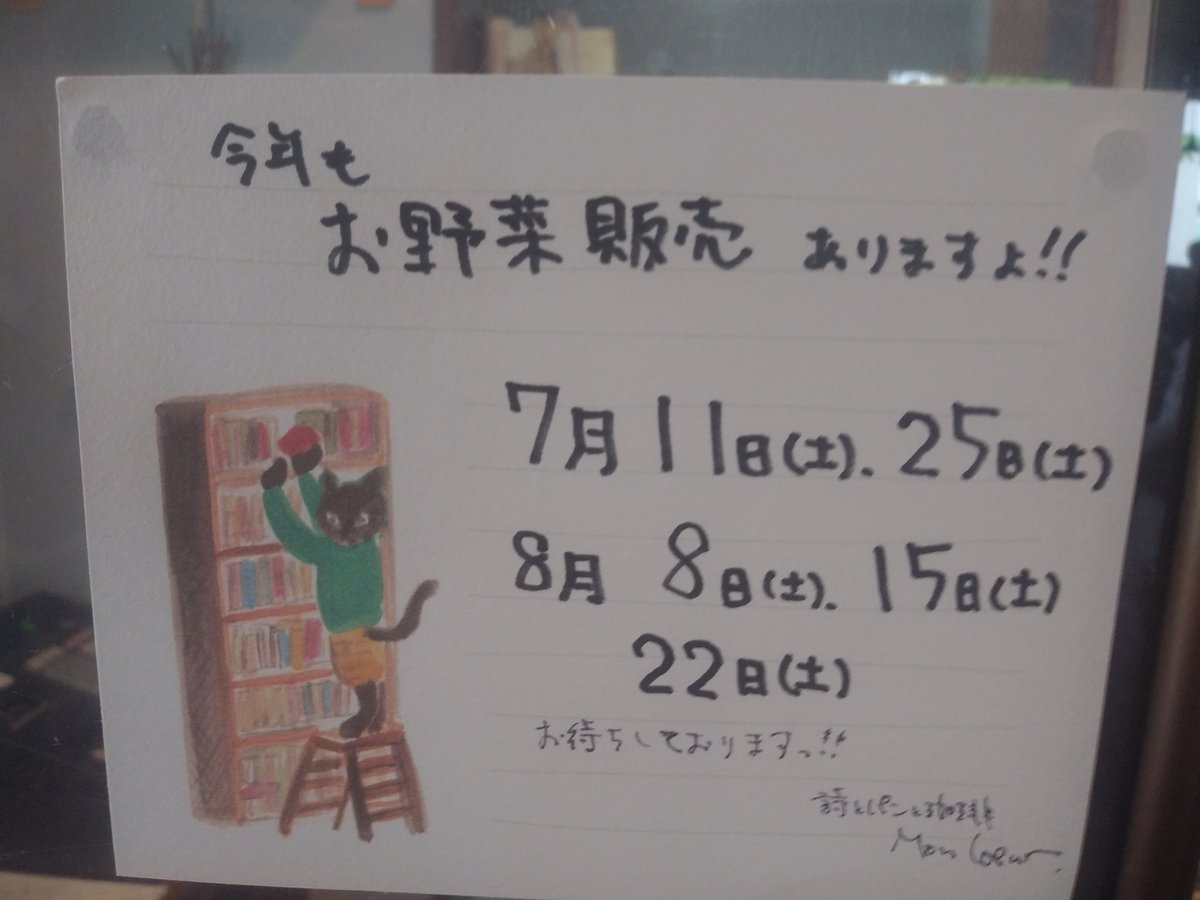 今年も
お野菜販売 ありますよ!!
7月 11日(土). 25日(土)
8月 8日(土). 15日(土)
22日(土)
お待ちしておりますっ!!
詩とパンと珈琲
Mon Coeur